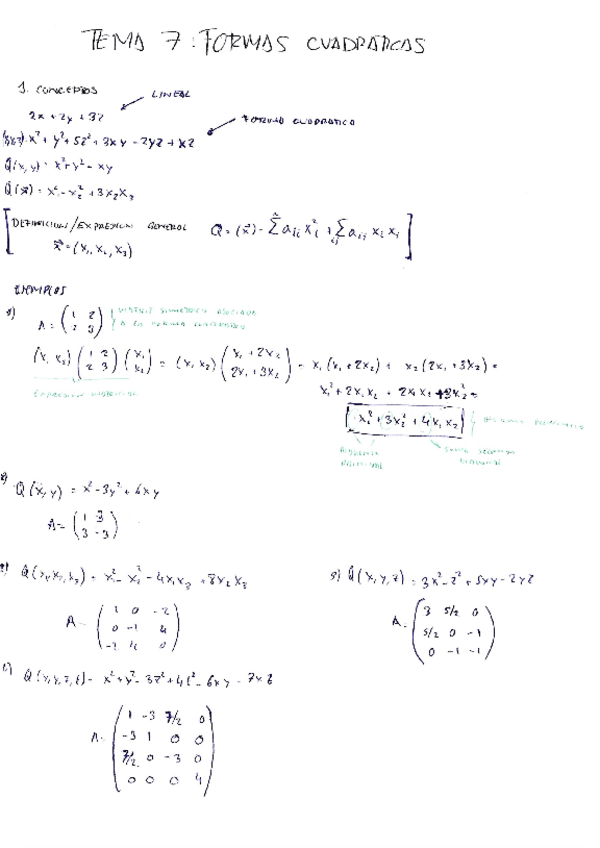 TEMA 7: FORMAS CUADRATICAS
1. CONCEPTOS
LINEAL
2x + 2y + 3z
FORMA CUADRATICA
x² + y² + 5z² + 3xy - 2yz + xz
Q(x, y) = x² + y² - xy
Q(x⃗) = x₁² - x₂² + 3x₂x₃
DEFINICION/EXPRESION GENERAL Q = (x⃗) = Σ aᵢᵢ xᵢ² + Σ aᵢⱼ xᵢ xⱼ
x⃗ = (x₁, x₂, x₃)
EJEMPLOS
A = (1 2
2 3)
MATRIZ SIMETRICA ASOCIADA
A LA FORMA CUADRATICA
(x₁ x₂) (1 2 / 2 3) (x₁ / x₂) = (x₁ x₂) (x₁ + 2x₂ / 2x₁ + 3x₂) = x₁(x₁ + 2x₂) + x₂(2x₁ + 3x₂) =
x₁² + 2x₁x₂ + 2x₁x₂ + 3x₂² =
x₁² + 3x₂² + 4x₁x₂
EXPRESION MATRICIAL
DIAGONAL
PRINCIPAL
Q(x, y) = x² - 3y² + 6xy
A = (1 3
3 -3)
Q(x₁, x₂, x₃) = x₁² - x₂² - 4x₁x₃ + 8x₂x₃
A = (1 0 -2
0 -1 4
-2 4 0)
Q(x, y, z) = 3x² - z² + 5xy - 2yz
A = (3 5/2 0
5/2 0 -1
0 -1 -1)
Q(x, y, z, t) = x² + y² - 3z² + 4t² - 6xy - 7xz
A = (1 -3 7/2 0
-3 1 0 0
7/2 0 -3 0
0 0 0 4)